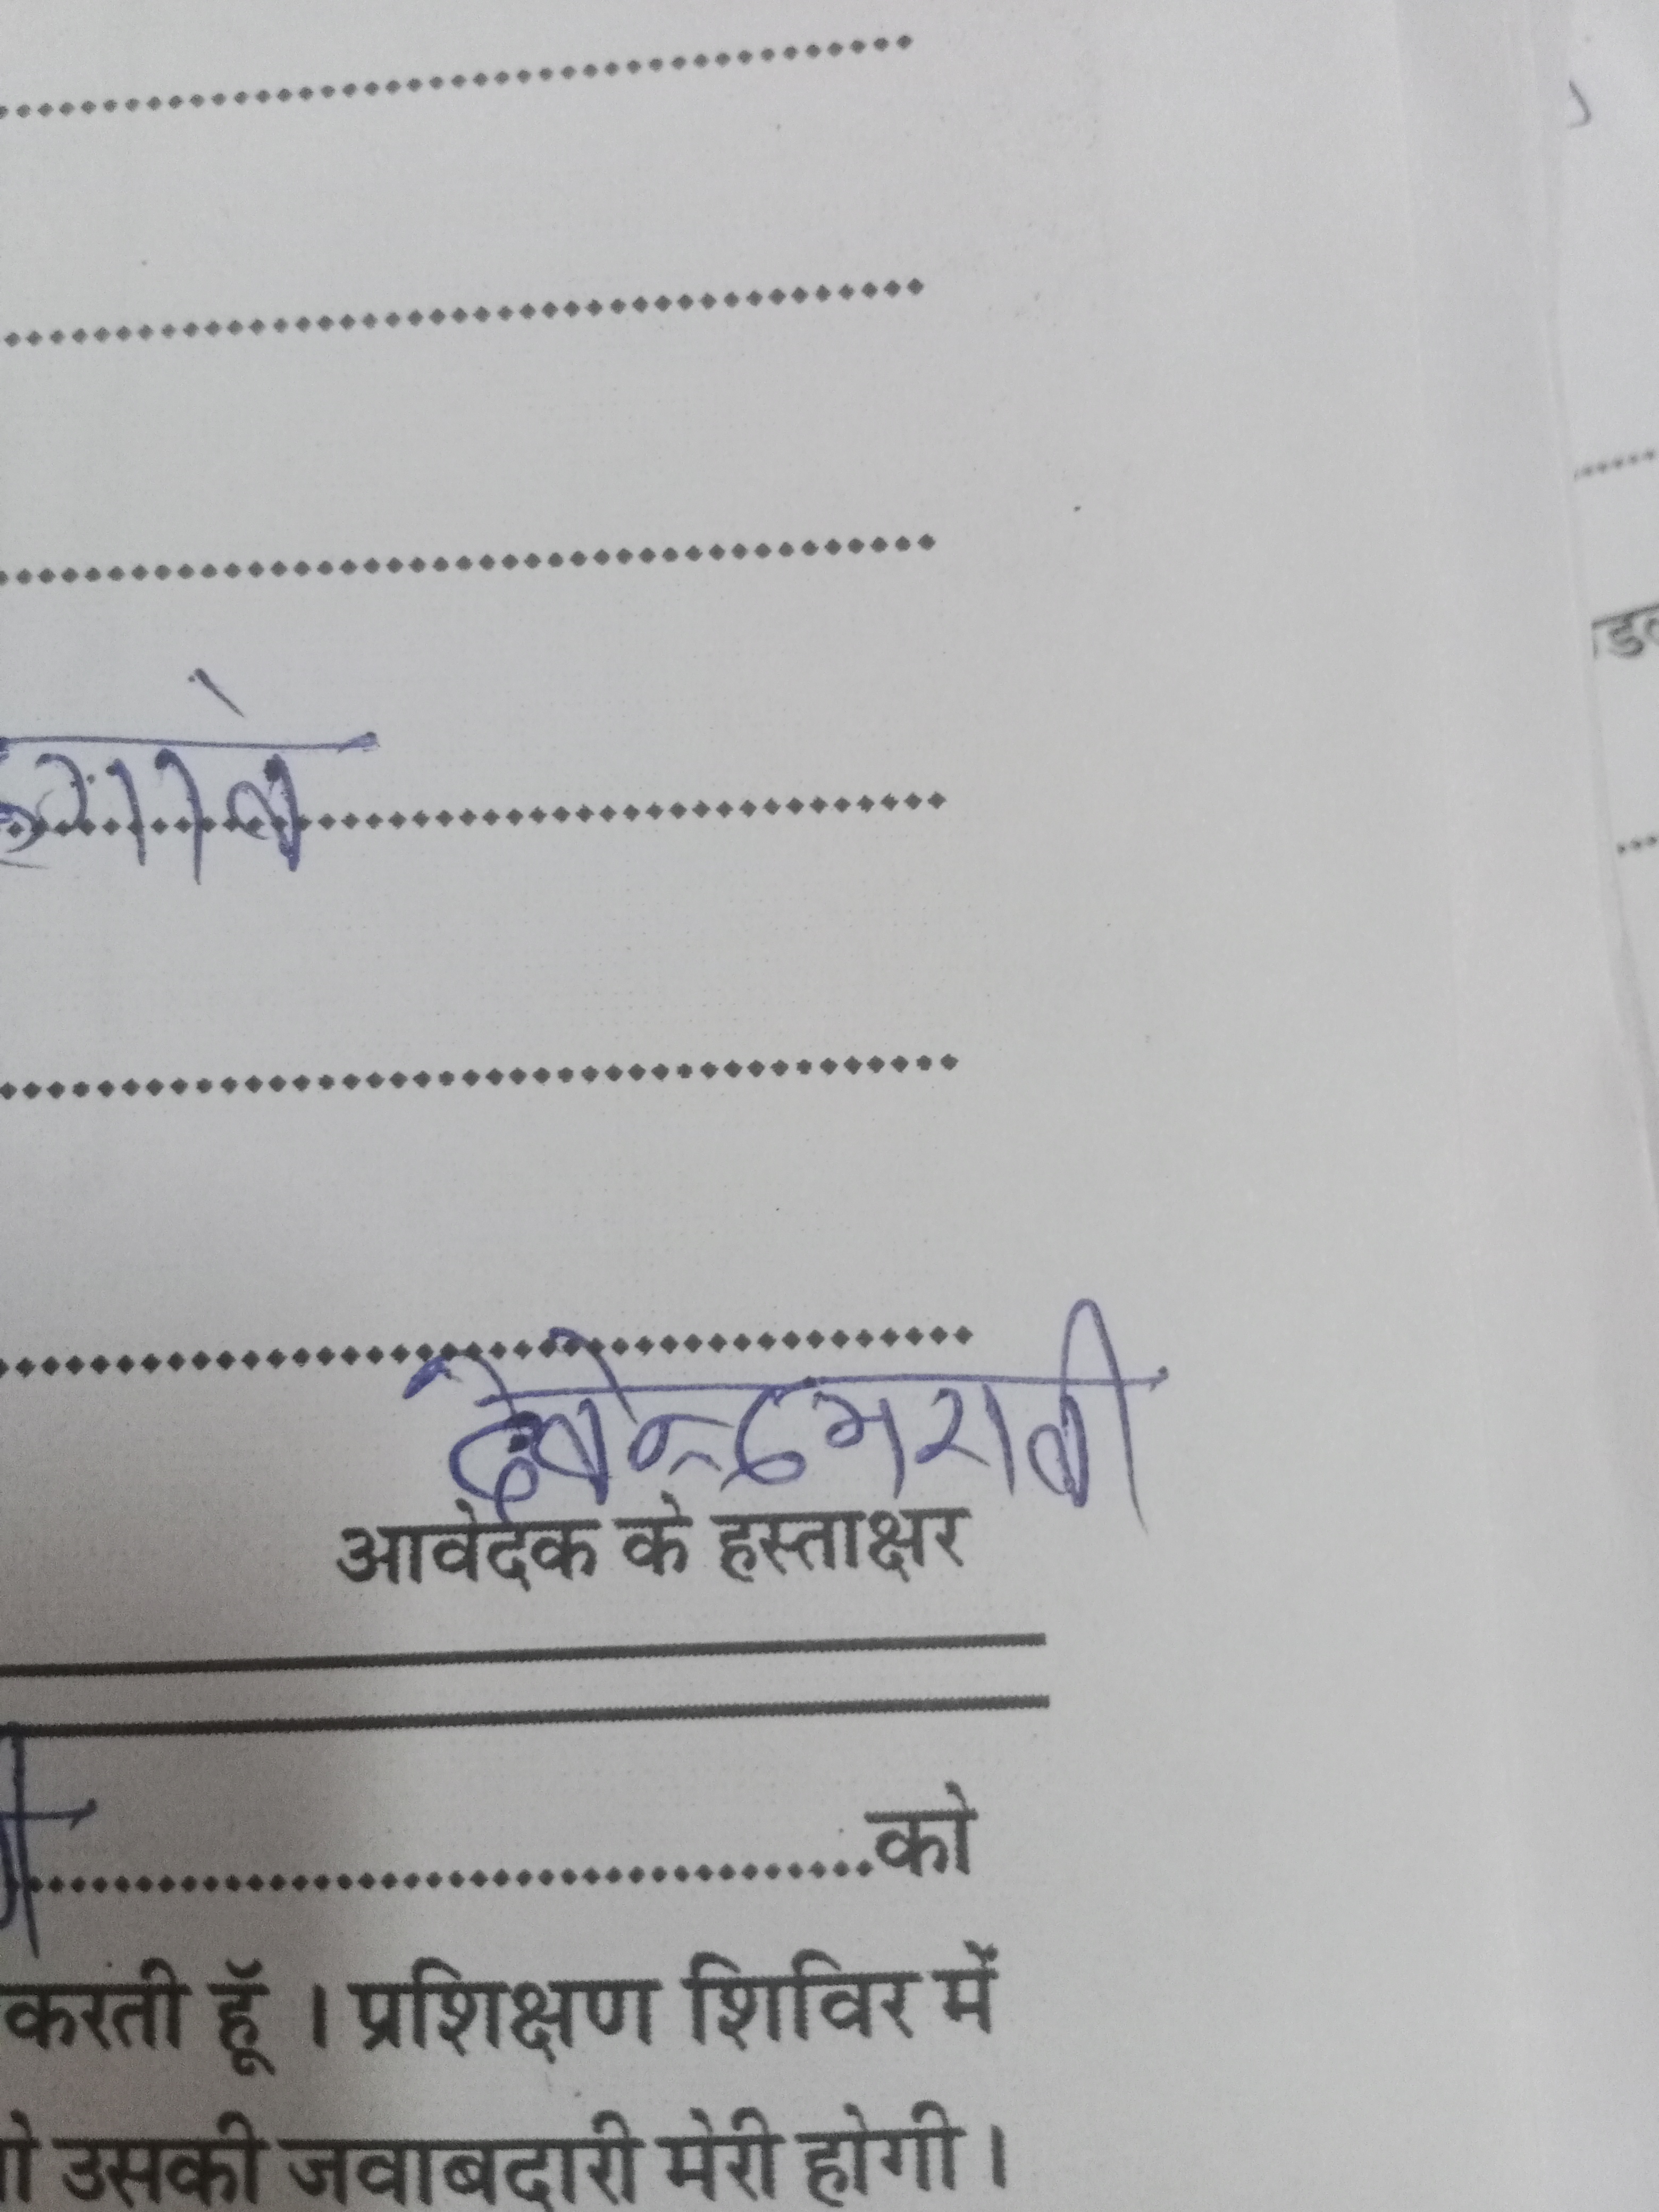 देवेन्द्र मरावी
आवेदक के हस्ताक्षर
को
करती हूॅ । प्रशिक्षण शिविर में
उसकी जवाबदारी मेरी होगी।